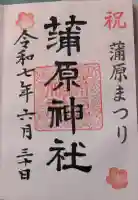 祝
蒲原まつり
蒲原神社
令和七年六月三十日